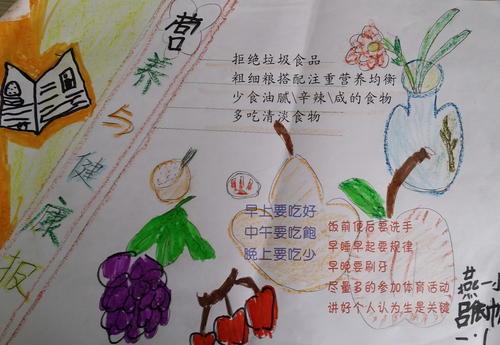 营养与健康报
拒绝垃圾食品
粗细粮搭配注重营养均衡
少食油腻\辛辣\成的食物
多吃清淡食物
早上要吃好
中午要吃飽
晚上要吃少
饭前便后要洗手
早睡早起要规律
早晚要刷牙
尽量多的参加体育活动
讲好个人认为生是关键
燕一小
吕
一.1